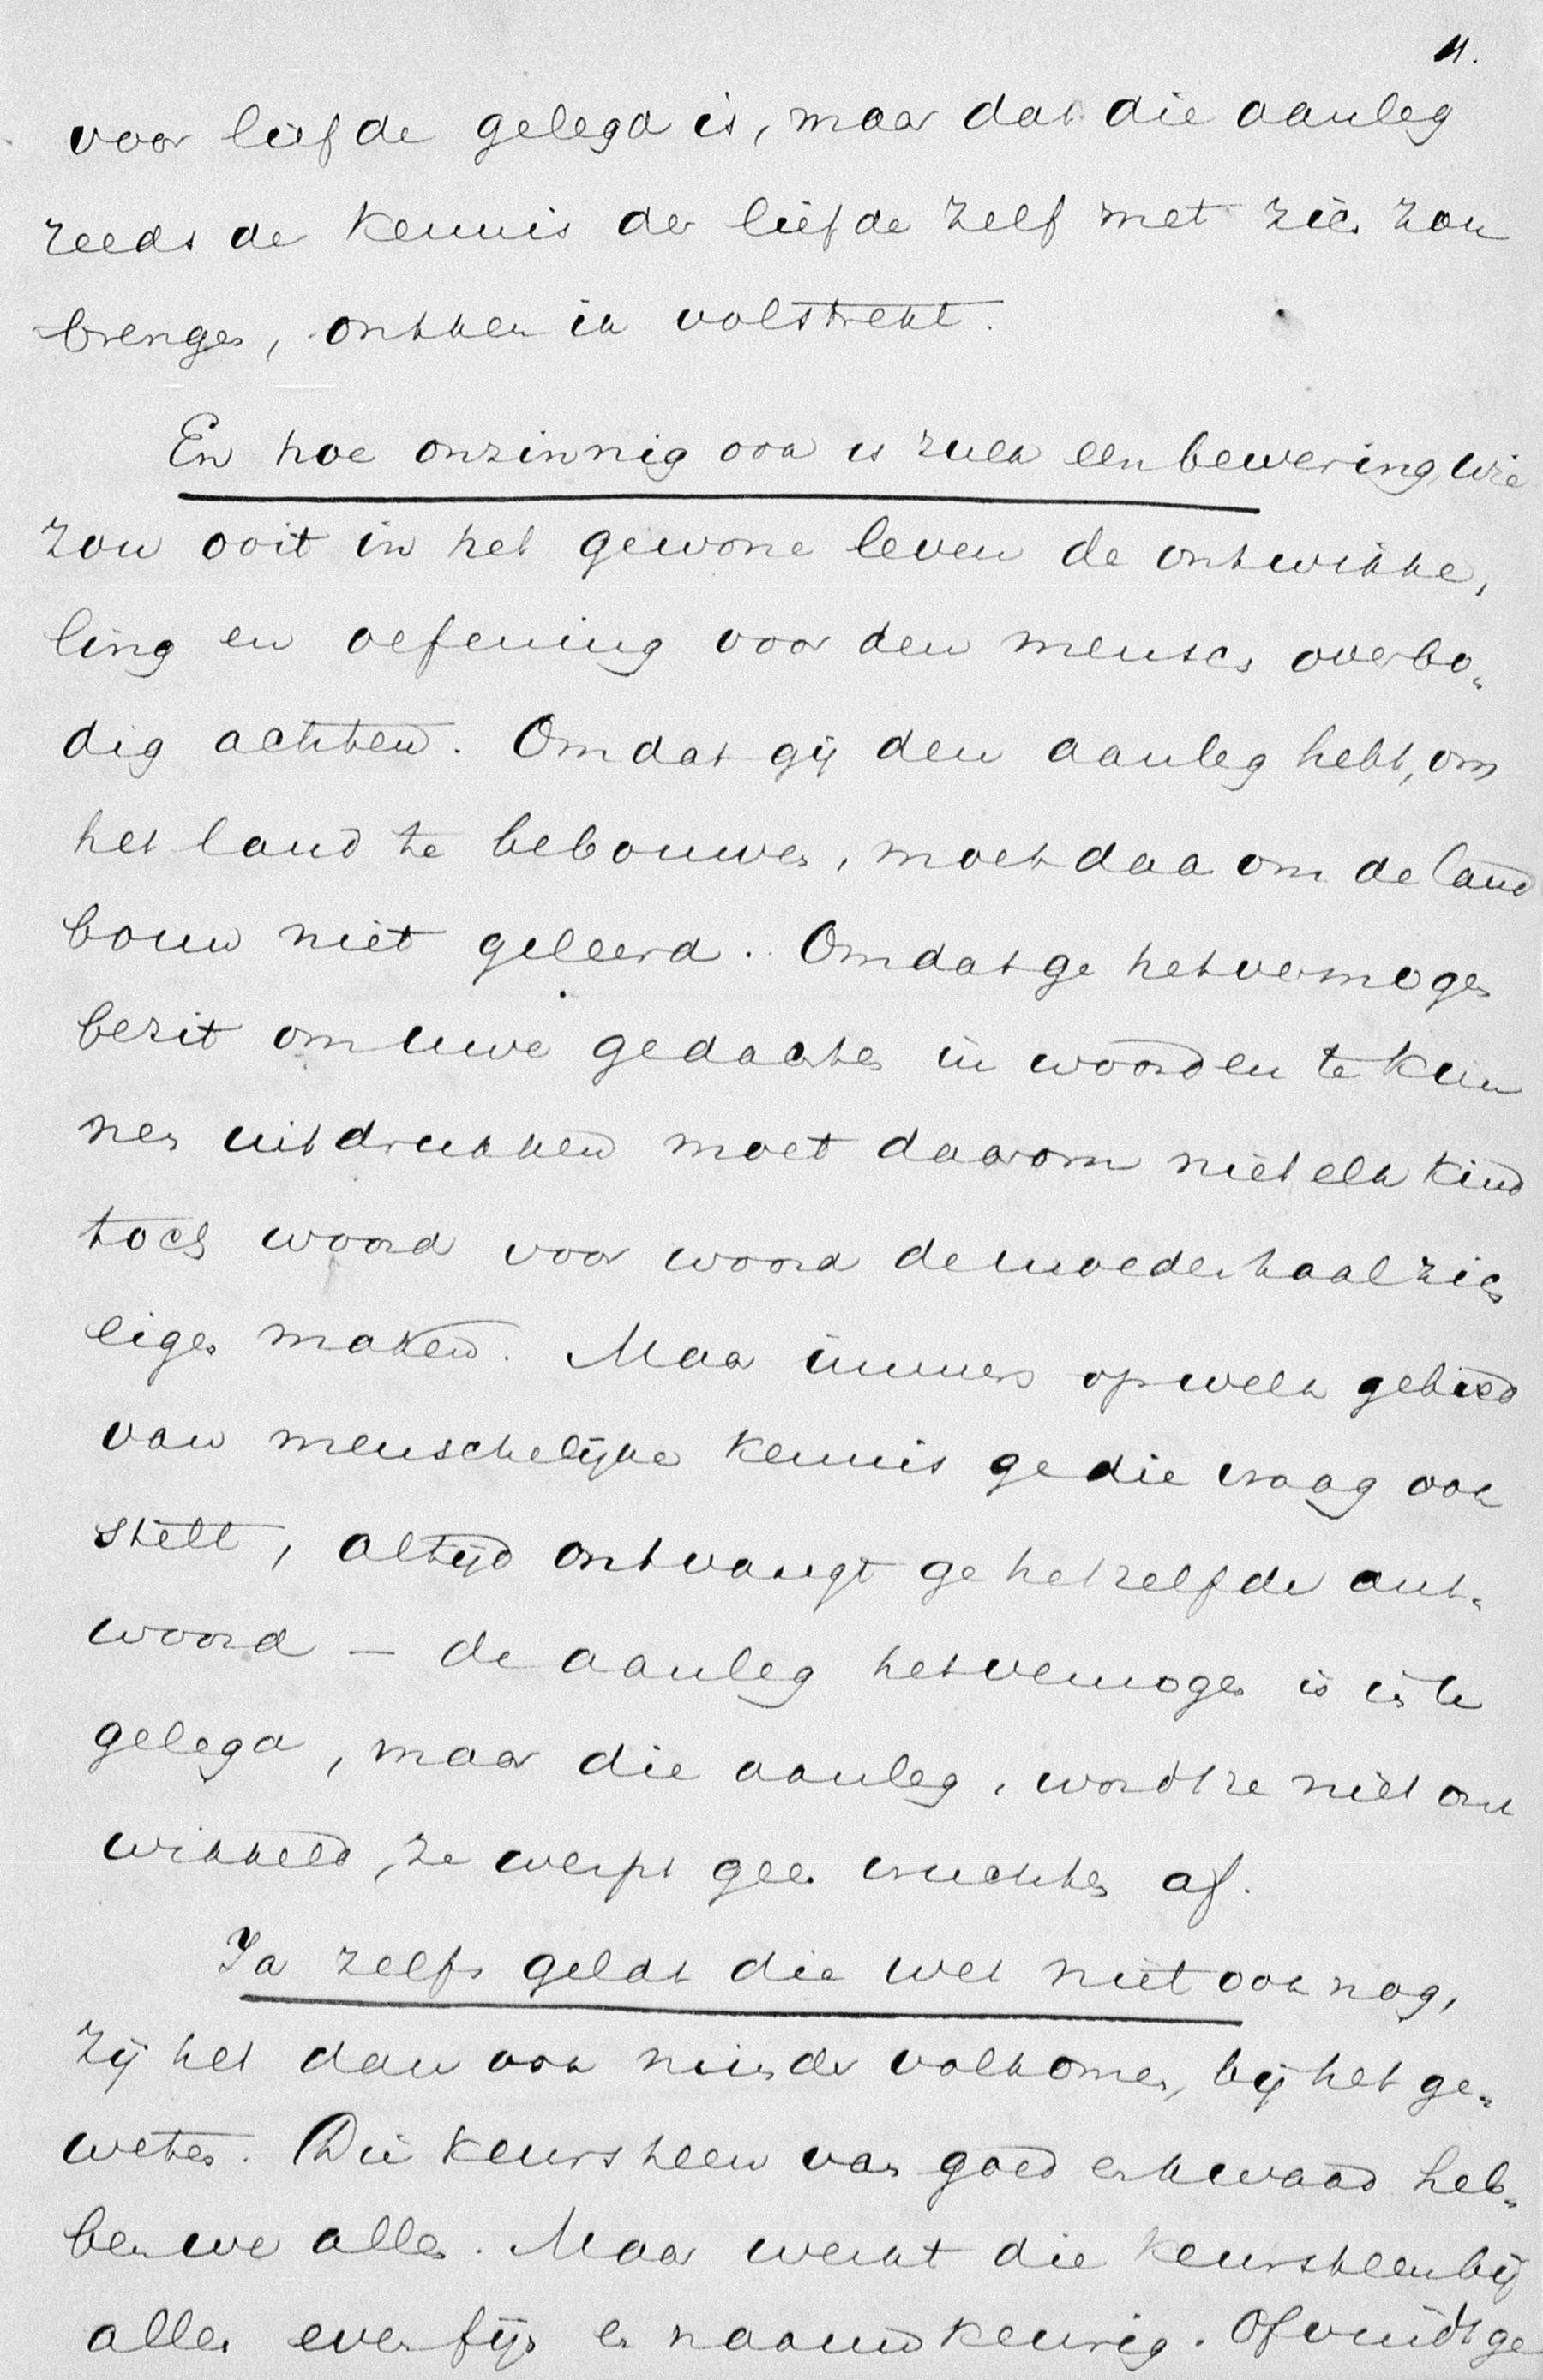 11.
voor liefde gelegd is, maar dat die aanleg
reeds de kennis der liefde zelf met zich zou
brengen, ontken ik volstrekt.
En hoe onzinnig ook is zulk een bewering, wie
zou ooit in het gewone leven de ontwikke„
ling en oefening voor den mensch overbo„
dig achten. Omdat gij den aanleg hebt, om
het land te bebouwen, moet daarom de land
bouw niet geleerd. Omdat ge het vermogen
bezit om uwe gedachten in woorden te kun
nen uitdrukken moet daarom niet elk kind
toch woord voor woord de moedertaal zich
eigen maken. Maar immers op welk gebied
van menschelijke kennis ge die vraag ook
stelt, altijd ontvangt ge hetzelfde ant„
woord — de aanleg het vermogen is in te
gelegd, maar die aanleg, wordt ze niet ont
wikkeld, ze werpt geen vruchten af.
Ja zelfs geldt die wet niet ook nog,
zij het dan ook minder volkomen, bij het ge„
weten. Die keursteen van goed en kwaad heb„
ben we allen. Maar werkt die keursteen bij
allen even fijn en naauwkeurig. Of vindt ge